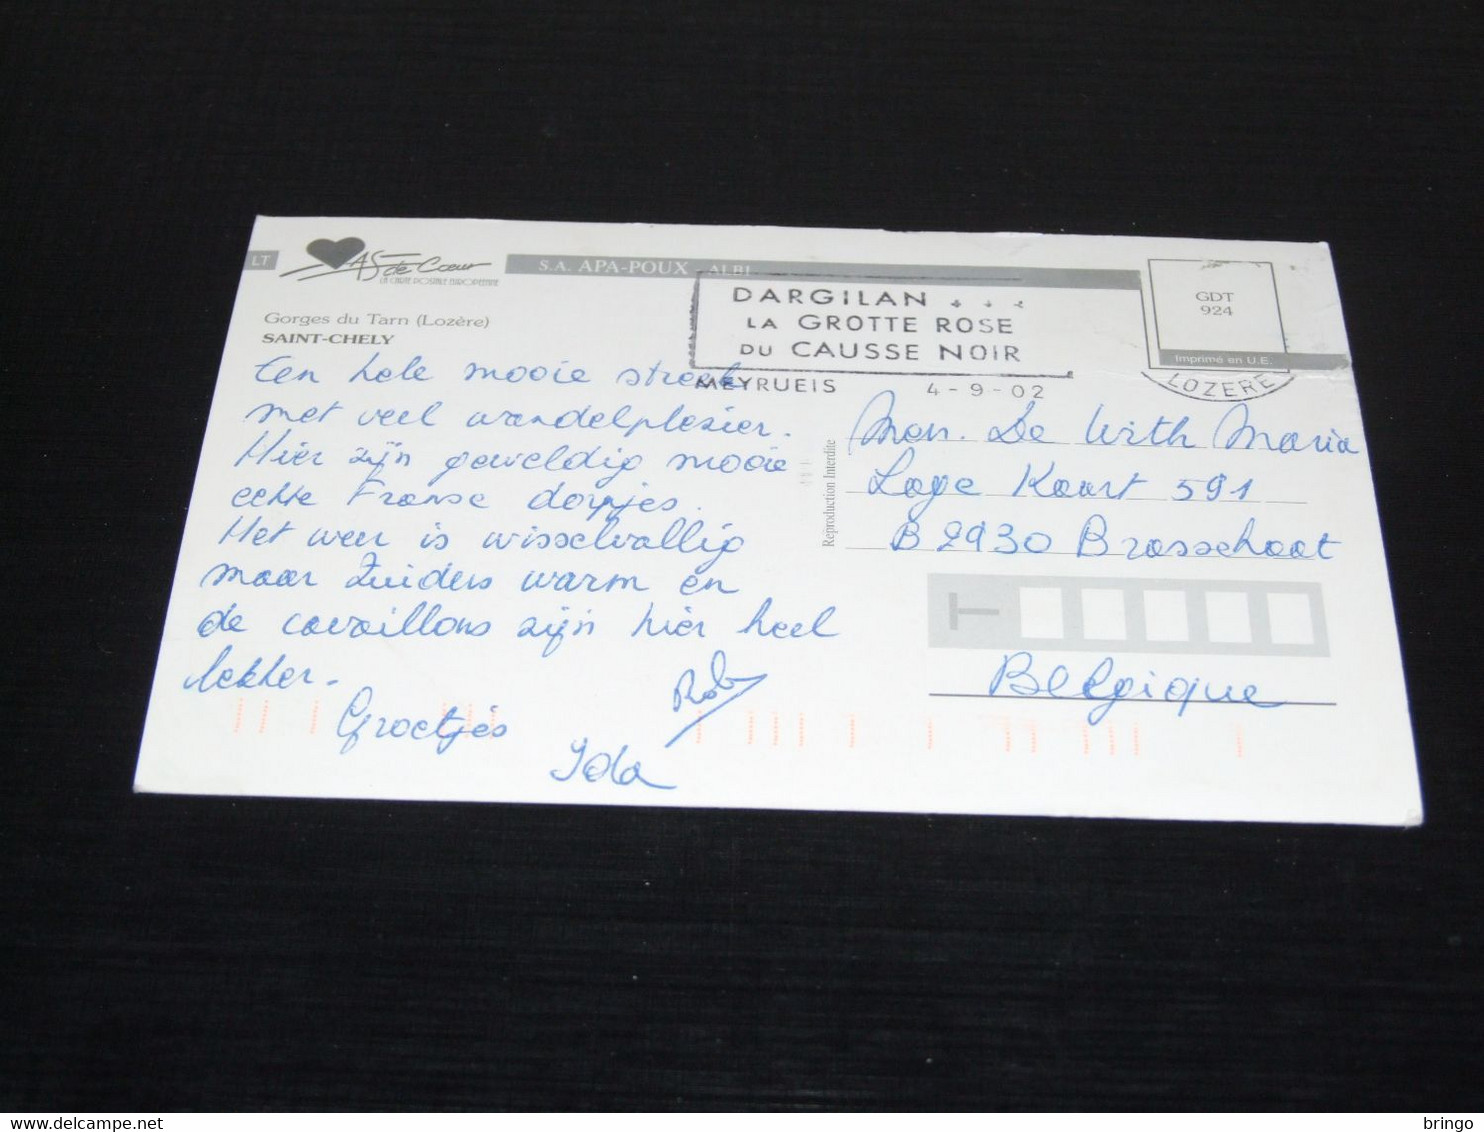 LT
AS de Cœur
LA CARTE POSTALE EUROPEENNE
S.A. APA-POUX - ALBI
Gorges du Tarn (Lozère)
SAINT-CHELY
DARGILAN
LA GROTTE ROSE
DU CAUSSE NOIR
MEYRUEIS 4-9-02
LOZERE
GDT
924
Imprimé en U.E.
Een hele mooie streek
met veel wandelplezier.
Hier zijn geweldig mooie
echte Franse dorpjes.
Het weer is wisselvallig
maar Zuiders warm en
de cavaillons zijn hier heel
lekker.
Groetjes
Rob
Ida
Reproduction Interdite
De With Maria
Lage Kaart 591
B 2930 Brasschaat
Belgique
bringo